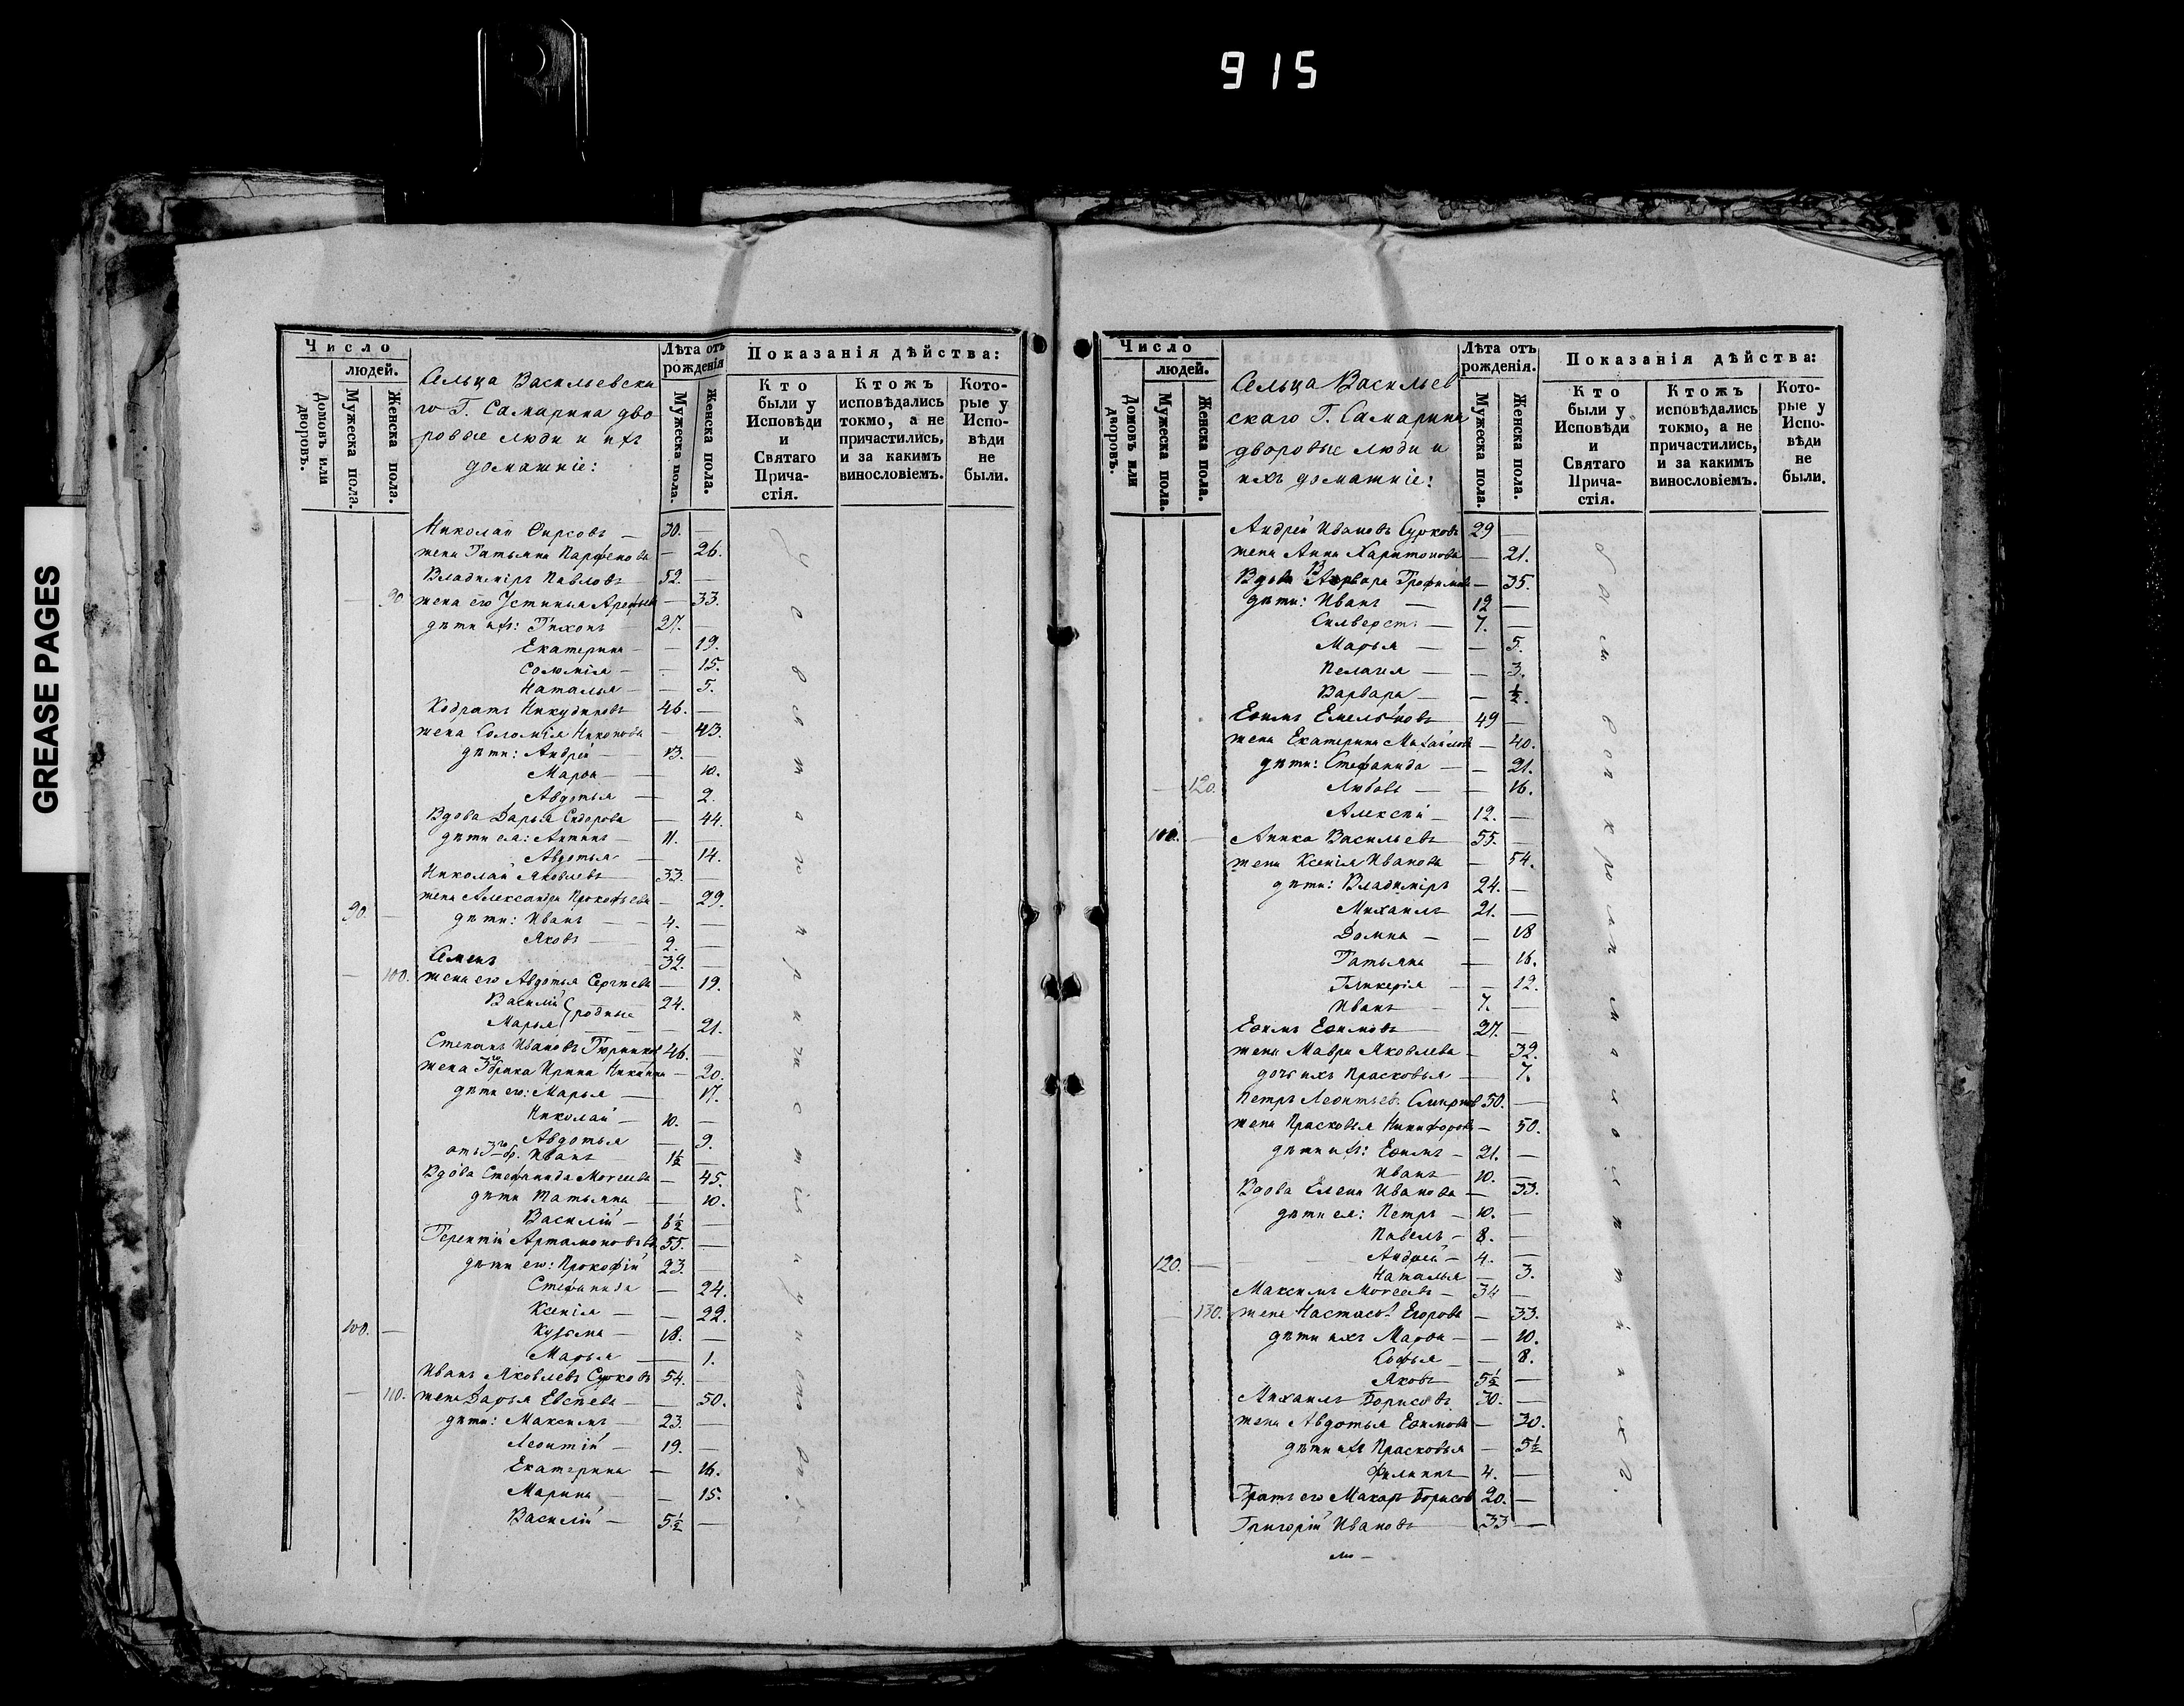 915
GREASE PAGES
Число
людей.
Домовъ или дворовъ.
Мужеска пола.
Женска пола.
Сельца Васильевска
го Г. Самарина дво
ровые люди и ихъ
домашніе:
Лѣта отъ рожденія
Мужеска пола.
Женска пола.
Показанія дѣйства:
Кто были у Исповѣди и Святаго Прича- стія.
Ктожъ исповѣдались токмо, а не причастились, и за какимъ винословіемъ.
Кото- рые у Испо- вѣди не были.
Николай Фирсовъ — 30. —
жена Татьяна Парфенова — 26.
Владиміръ Павловъ 52. —
— 90. жена его Устинья Арефьева — 33.
дѣти ихъ: Тихонъ 27. —
Екатерина — — 19.
Соломія — — 15.
Наталья — — 5.
Кодратъ Никудиновъ 46. —
жена Соломія Никонова — 43.
дѣти: Андрей — 13. —
Марѳа — — 10.
Авдотья — 2.
Вдова Дарья Сидорова — 44.
дѣти ея: Антипъ — 11. —
Авдотья — 14.
Николай Яковлевъ 33. —
жена Александра Прокофьева — 29.
90. — дѣти: Иванъ — 4. —
Яковъ — 2. —
Семенъ 32. —
— 100. жена его Авдотья Сергѣева — 19.
Василій 24. —
родные
Марья — 21.
Степанъ Ивановъ Тюринъ 46. —
жена 3го брака Ирина Никитина — 20.
дѣти его: Марья — 17.
Николай — 10. —
Авдотья — 9.
отъ 3го бр. Иванъ — 1½ —
Вдова Стефанида Моисеева — 45.
дѣти Татьяна — 10.
Василій — 6½ —
Терентій Артамоновъ 55. —
дѣти его: Прокофій 23. —
Стефанида — 24.
Ксенія — — 22.
100. — Кузьма — 18. —
Марья — 1.
Иванъ Яковлевъ Сурковъ 54. —
— 110. жена Дарья Евсѣева — 50.
дѣти: Максимъ — 23. —
Леонтій — 19. —
Екатерина — 16.
Марина — — 15.
Василій — 5½ —
У Исвятаго причастія
Число
людей.
Домовъ или дворовъ.
Мужеска пола.
Женска пола.
Сельца Васильев
скаго Г. Самарина
дворовые люди и
ихъ домашніе:
Лѣта отъ рожденія.
Мужеска пола.
Женска пола.
Показанія дѣйства:
Кто были у Исповѣди и Святаго Прича- стія.
Ктожъ исповѣдались токмо, а не причастились, и за какимъ винословіемъ.
Кото- рые у Испо- вѣди не были.
Андрей Ивановъ Сурковъ 29 —
жена Анна Харитонова — 21.
Вдова Варвара Трофимова — 35.
дѣти: Иванъ — 12 —
Сильверстъ — 7. —
Марья — — 5.
Пелагия — — 3.
Варвара — — ½.
Ефимъ Емельяновъ 49 —
жена Екатерина Михайлова — 40.
дѣти: Стефанида — — 21.
— 120. Любовь — — 16.
Алексѣй — 12. —
110. — Аника Васильевъ 55. —
жена Ксенія Иванова — 54.
дѣти: Владиміръ 24. —
Михаилъ 21. —
Домна — — 18
Татьяна — 16.
Гликерія — — 12.
Иванъ 7. —
Ефимъ Ефимовъ 27. —
жена Мавра Яковлева — 32.
дочь ихъ Прасковья — 7.
Петръ Леонтьевъ Смирновъ 50. —
жена Прасковья Никифорова — 50.
дѣти ихъ: Ефимъ — 21. —
Иванъ — 10. —
Вдова Елена Иванова — 33.
дѣти ея: Петръ — 10. —
Павелъ — 8. —
120. — Андрей — 4. —
Наталья — 3.
Максимъ Моисеевъ — 34 —
— 130. жена Настасья Егорова — 33.
дѣти ихъ Марѳа — — 10.
Софья — — 8.
Яковъ 5½ —
Михаилъ Борисовъ 30. —
жена Авдотья Ефимова — 30.
дѣти ихъ Прасковья — 5½
Филиппъ 4. —
Братъ его Макаръ Борисовъ 20. —
Григорій Ивановъ 33 —